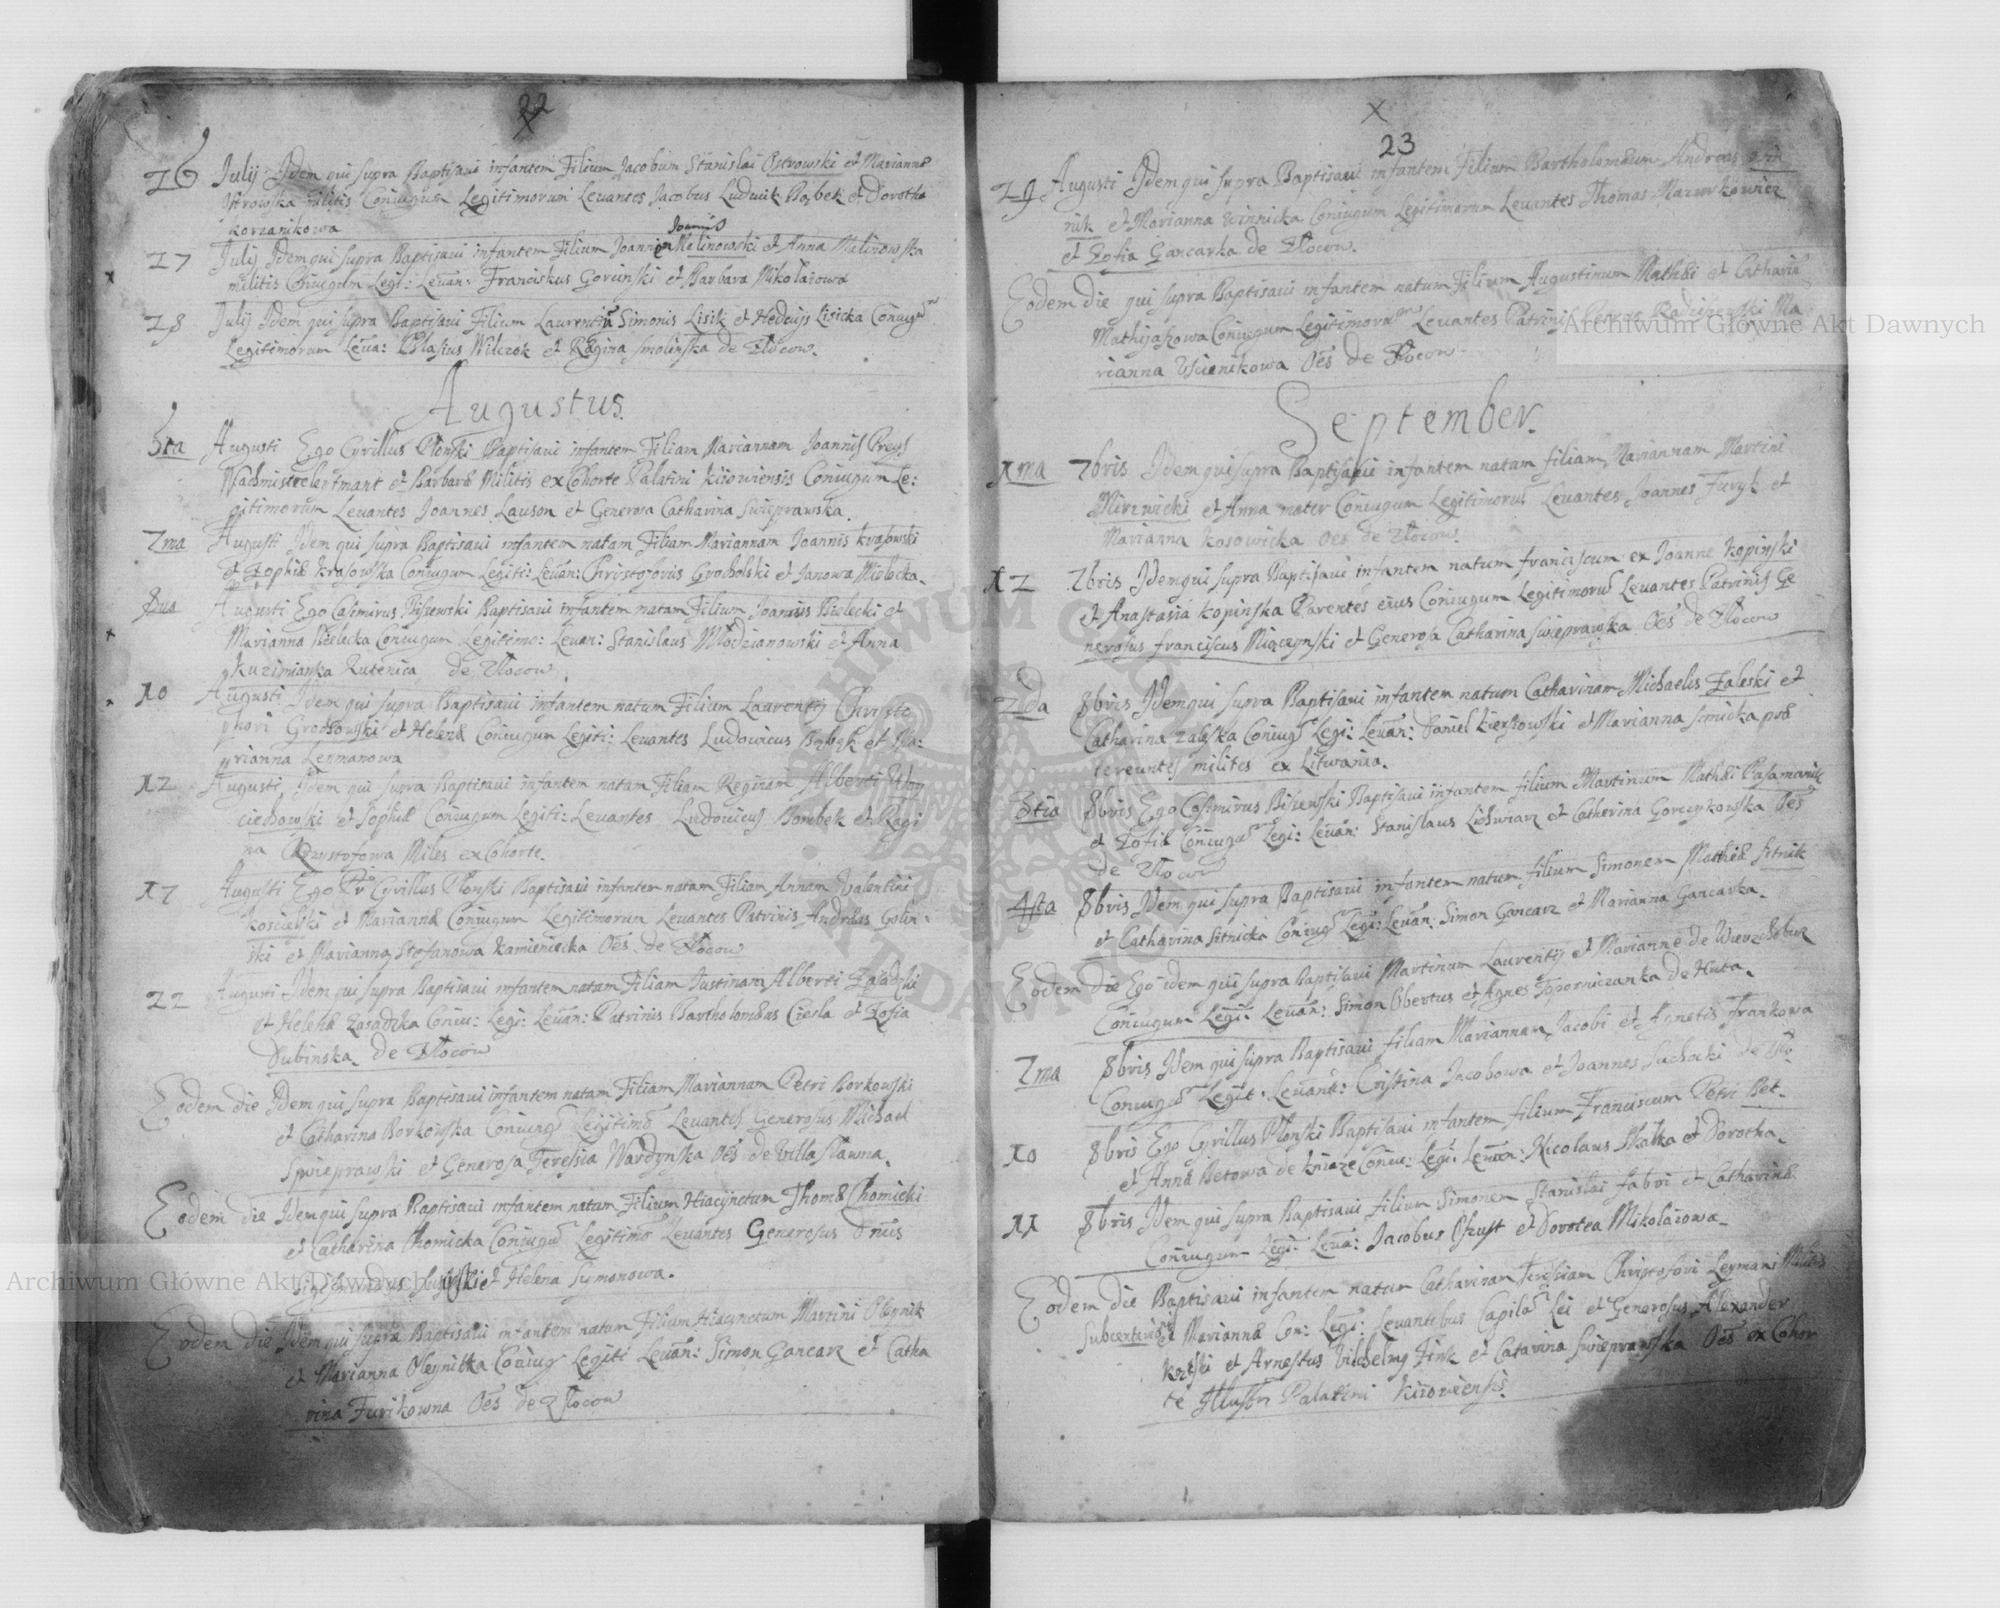 22
26 Julij Idem qui supra Baptisavi infantem Filium Jacobum Stanislai Ostrowski et Marianna
Ostrowska militis Coniugum Legitimorum Levantes Jacobus Ludwik Bąbek et Dorotha
korzanikowa
Joannis
27 Julij Idem qui supra Baptisavi infantem Filium Joannem Melinowski et Anna Melinowska
militis Coniugum Legi: Levan: Franciskus Gorcinski et Barbara Mikolaiowa
28 Julij Idem qui supra Baptisavi Filium Laurentiu Simonis Lisik et Hedvijs Lisicka Coniugu
Legitimorum Leva: Blasius Wilczok et Ragina Smolinska de Złocow.
Augustus.
5ta Augusti Ego Cyrillus Płonski Baptisavi infantem Filiam Mariannam Joannis Preys
et Barbara Militis ex Cohorte Palatini kijowiensis Coniugum Le:
gitimorum Levantes Joannes Lauson et Generosa Catharina Swieprawska
7ma Augusti Idem qui supra Baptisavi infantem natam Filiam Mariannam Joannis krasowski
et Zophiæ krasowska Coniugum Legiti: Levan: Christoforis Grocholski et Janowa Mielecka
8va Augusti Ego Casimirus Bisewski Baptisavi infantem natam Filium Joannis Bielecki et
Marianna Bielecka Coniugum Legitimo: Levan: Stanislaus Włodzianowski et Anna
kuzimianka Rutenica de Złocow.
10 Augusti Idem qui supra Baptisavi infantem natum Filium Laurentij Christo
phori Grochowski et Helenæ Coniugum Legiti: Levantes Ludovicus Bąbek et Ma:
rianna Lermanowa
12 Augusti, Idem qui supra Baptisavi infantem natam Filiam Reginam Alberti Woy
ciechowski et Sophiæ Coniugum Legiti: Levantes Ludovicus Bombek et Ragi
na Krzystofowa Miles ex Cohorte.
17 Augusti Ego Cyrillus Płonski Baptisavi infantem natam Filiam Annam Valentini
koscielski et Mariannæ Coniugum Legitimorum Levantes Patrinis Andreas Golin:
ski et Marianna Stefanowa kamieniecka Oēs de Złocow
22 Augusti Idem qui supra Baptisavi infantem natam Filiam Iustinam Alberti Zasadzki
et Helenæ Zasadzka Coniu: Legi: Levan: Patrinis Bartholomæus Ciesla et Zofia
Dubinska de Złocow
Eodem die Idem qui supra Baptisavi infantem natam Filiam Mariannam Petri Borkowski
et Catharina Borkowska Coniung Legitimo Levantes Generosus Michael
Swieprawski et Generosa Teressia Wardynska Oēs de Villa Sławna.
Eodem die Idem qui supra Baptisavi infantem natam Filium Hiacynctum Thomæ Chomicki
et Catharina Chomicka Coniugu Legitimo Levantes Generosus Dnūs
et Helena Symonowa.
Eodem die Idem qui supra Baptisavi infantem natum Filium Hiacynctum Martini Oleynik
et Marianna Oleynikka Coniug Legiti Levan: Simon Gancarz et Catha
rina Furikowna Oēs de Złocow
23
29 Augusti Idem qui supra Baptisavi infantem Filium Bartholomæum Andreas Win
nik et Marianna Winnicka Coniugum Legitimorum Levantes Thomas Mazurkowicz
et Zofia Gancarka de Złocow.
Eodem die qui supra Baptisavi infantem natum Filium Augustinum Mathæi et Catharin
Mathijaszowa Coniugum Legitimorum Levantes Patrinis Ma
rianna Oēs de Złocow
September.
1ma 7bris Idem qui supra Baptisavi infantem natam filiam Mariannam Martini
Mirznicki et Anna mater Coniugum Legitimoru Levantes Joannes Furyk et
Marianna kosowicka Oes de Złocow.
12 7bris Idem qui supra Baptisavi infantem natum franciscum ex Joanne kopinski
et Anastasia kopinska Parentes eius Coniugum Legitimoru Levantes Patrinis Ge
nerosus franciscus Miączynski et Generosa Catharina Swieprawska Oēs de Złocow
2da 8bris Idem qui supra Baptisavi infantem natum Catharinam Michaelis Zaleski et
Catharina Zaleska Coniug Legi: Levan: Daniel kierszowski et Marianna Semicka præ
tereuntes milites ex Litwania.
3tia 8bris Ego Casimirus Bisewski Baptisavi infantem filium Martinum Mathæi Pasamanik
et Zofiæ Coniugu Legi: Levan: Stanislaus Lichwiarz et Catherina Gorczykowska Oēs
de Złocow
4sta 8bris Idem qui supra Baptisavi infantem natum filium Simonem Mathiæ Sitnik
et Catharina Sitnicka Coniug Legi: Levan: Simon Gancarz et Marianna Gancarka.
Eodem die Ego idem qui supra Baptisavi Martinum Laurentij et Marianne de Wierzchobuz
Coniugum Legi: Levan: Simon Obertus et Agnes Toporniczanka de Huta.
7ma 8bris Idem qui supra Baptisavi filiam Mariannam Jacobi et Agnetis Frankowa
Coniugu Legit: Levant: Cristina Jacobowa et Joannes Suchocki de Zło:
10 8bris Ego Cyrillus Płonski Baptisavi infantem filium Franciscum Petri Bet.
et Anna Betowa de kniaze Coniu: Legi: Levan: Nicolaus Skalka et Dorotha.
11 8bris Idem qui supra Baptisavi filium Simonem Stanislai fabri et Catharinæ
Coniugum Legi: Leva: Jacobus Chust et Dorotea Mikolaiowa.
Eodem die Baptisavi infantem natum Catharinam Teressiam Christofori Leymani Miles
et Mariannæ Con: Legi: Levantibus et Generosus Alexander
et Arnestus Vilchelmg Fink et Catarina Swieprawska Oēs ex Cohor
te Illustri Palatini Kijoviensis.
Archiwum Główne Akt Dawnych
Archiwum Główne Akt Dawnych
ARCHIWUM GŁÓWNE AKT DAWNYCH